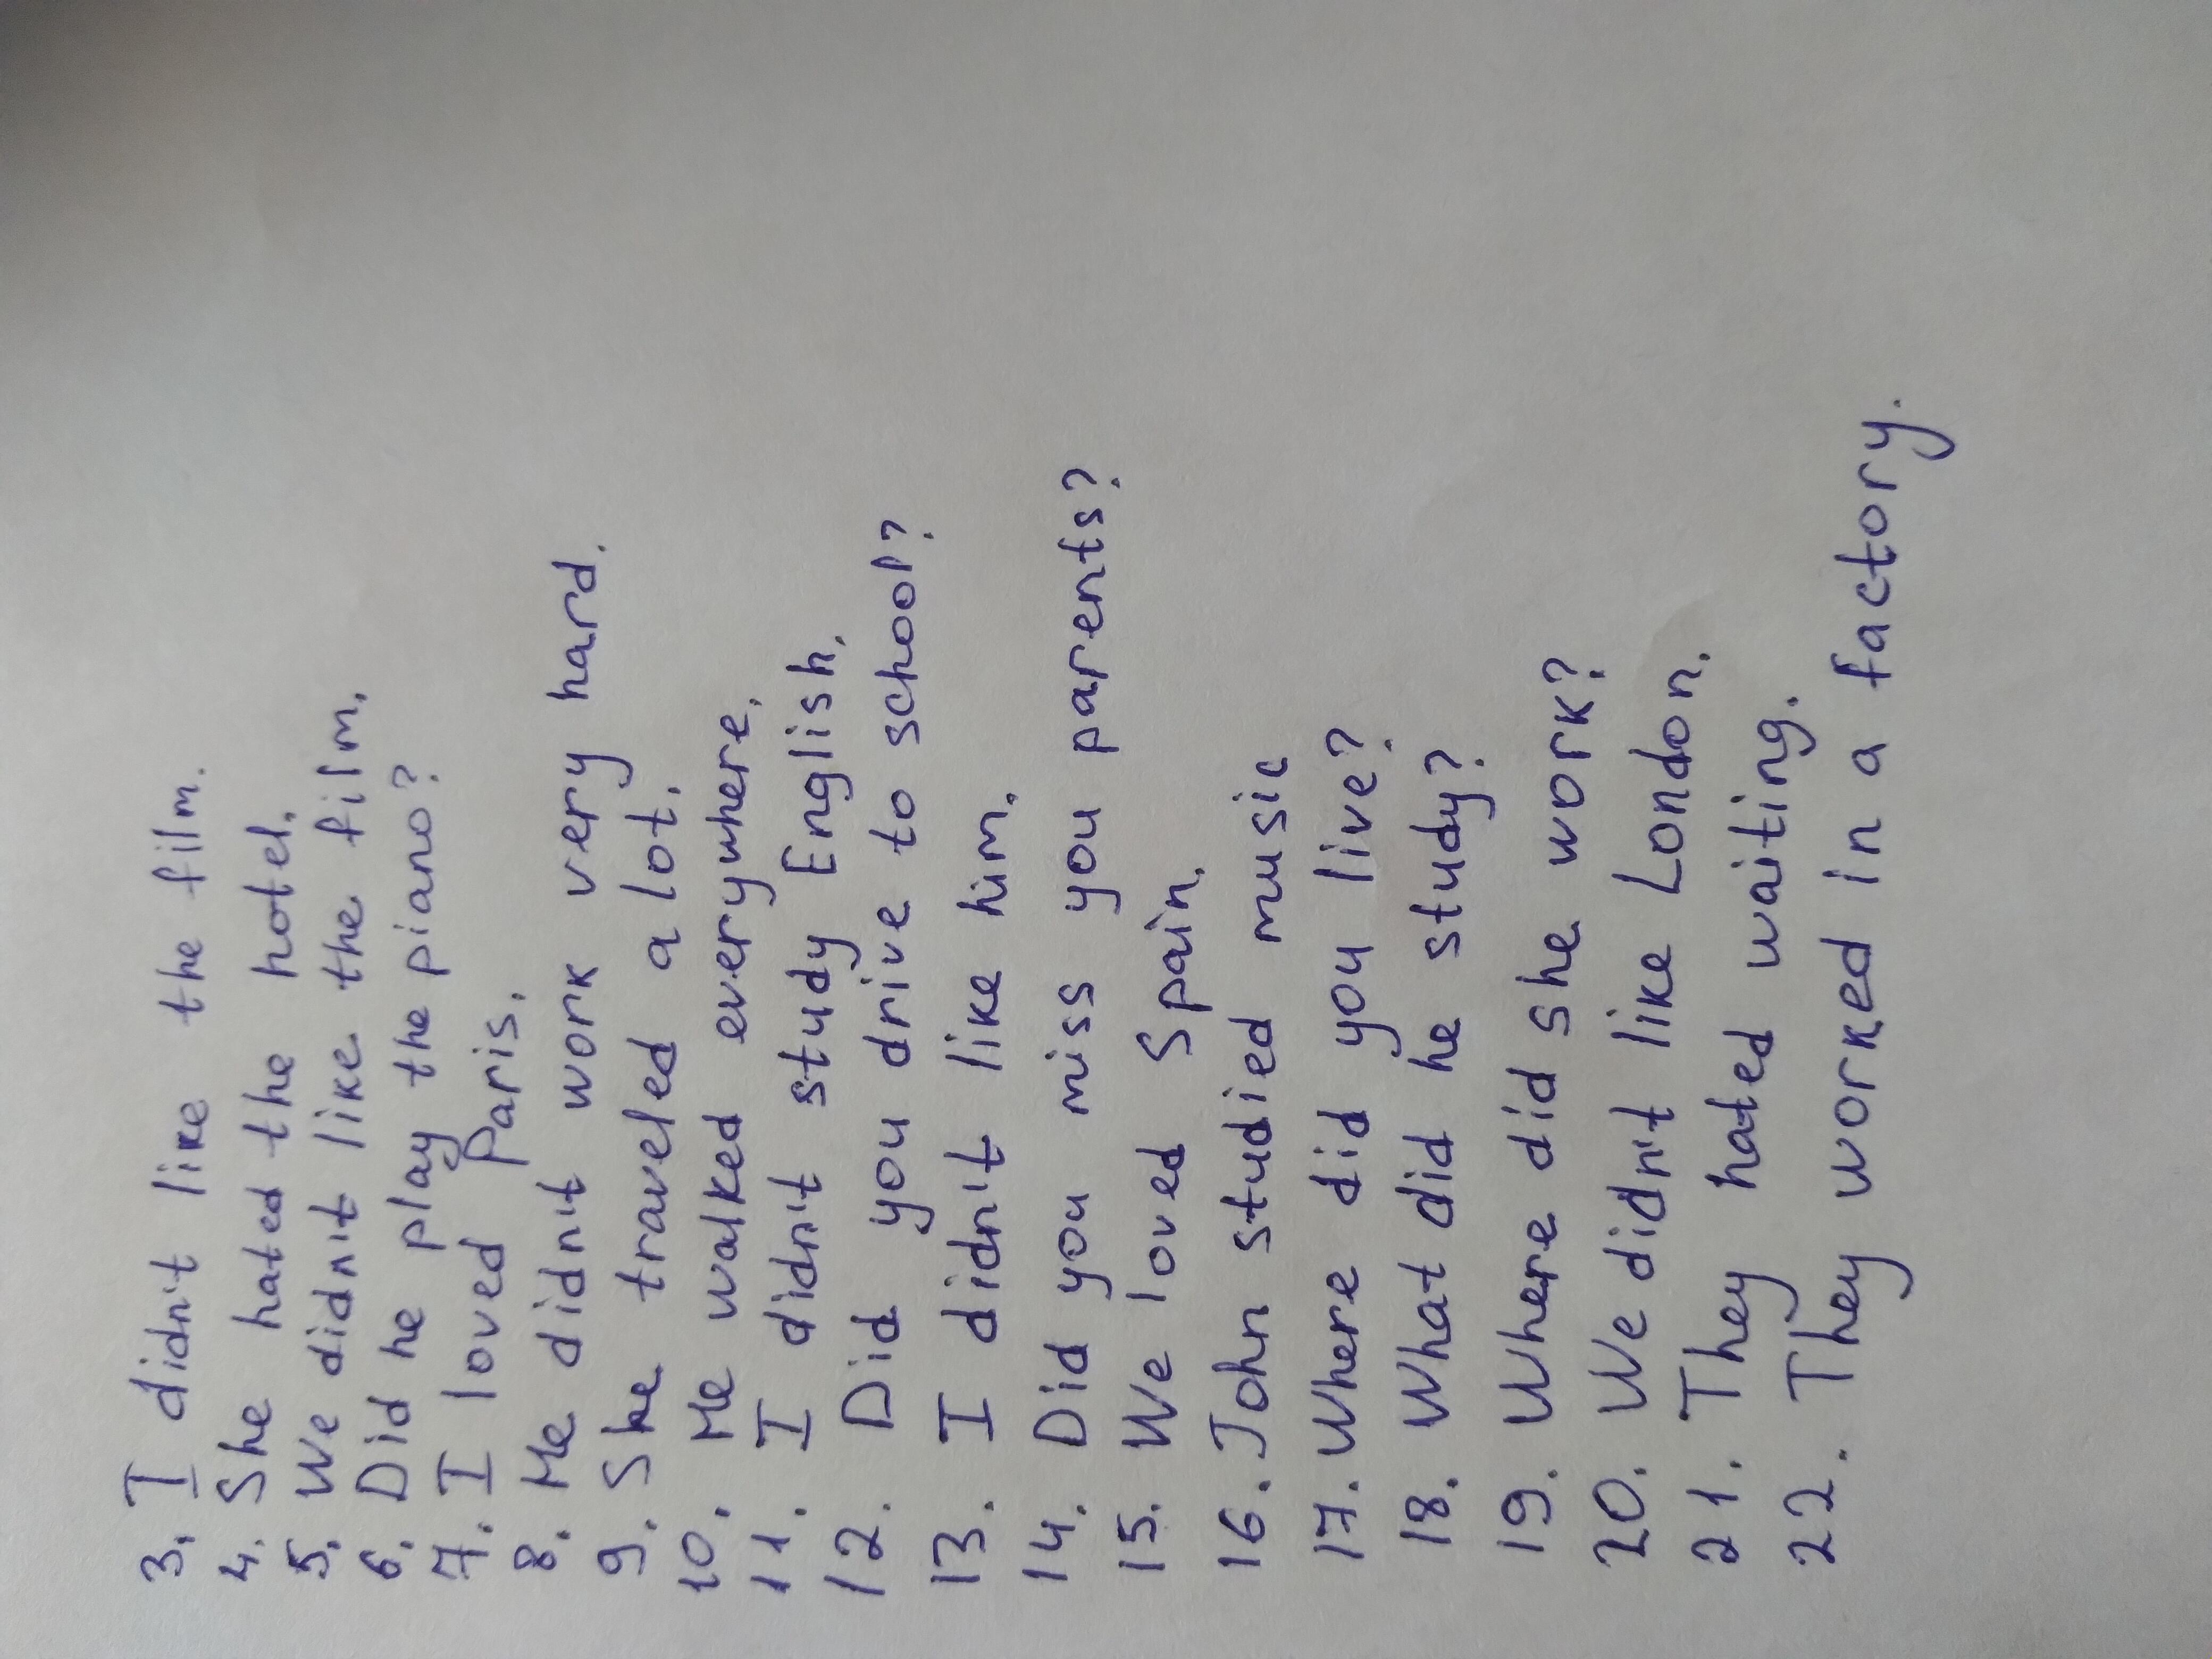 3. I didn't like the film.
4. She hated the hotel.
5. We didn't like the film.
6. Did he play the piano?
7. I loved Paris.
8. He didn't work very hard.
9. She traveled a lot.
10. He walked everywhere.
11. I didn't study English.
12. Did you drive to school?
13. I didn't like him.
14. Did you miss you parents?
15. We loved Spain.
16. John studied music
17. Where did you live?
18. What did he study?
19. Where did she work?
20. We didn't like London.
21. They hated waiting.
22. They worked in a factory.